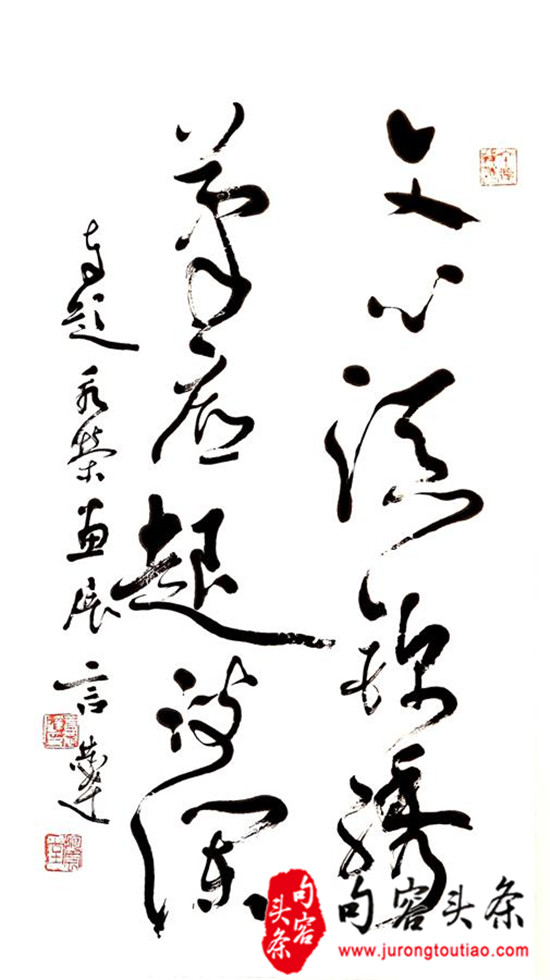 文心锦绣
笔底起波澜
题永荣画展 言恭达
句容头条
句容头条
www.jurongtoutiao.com